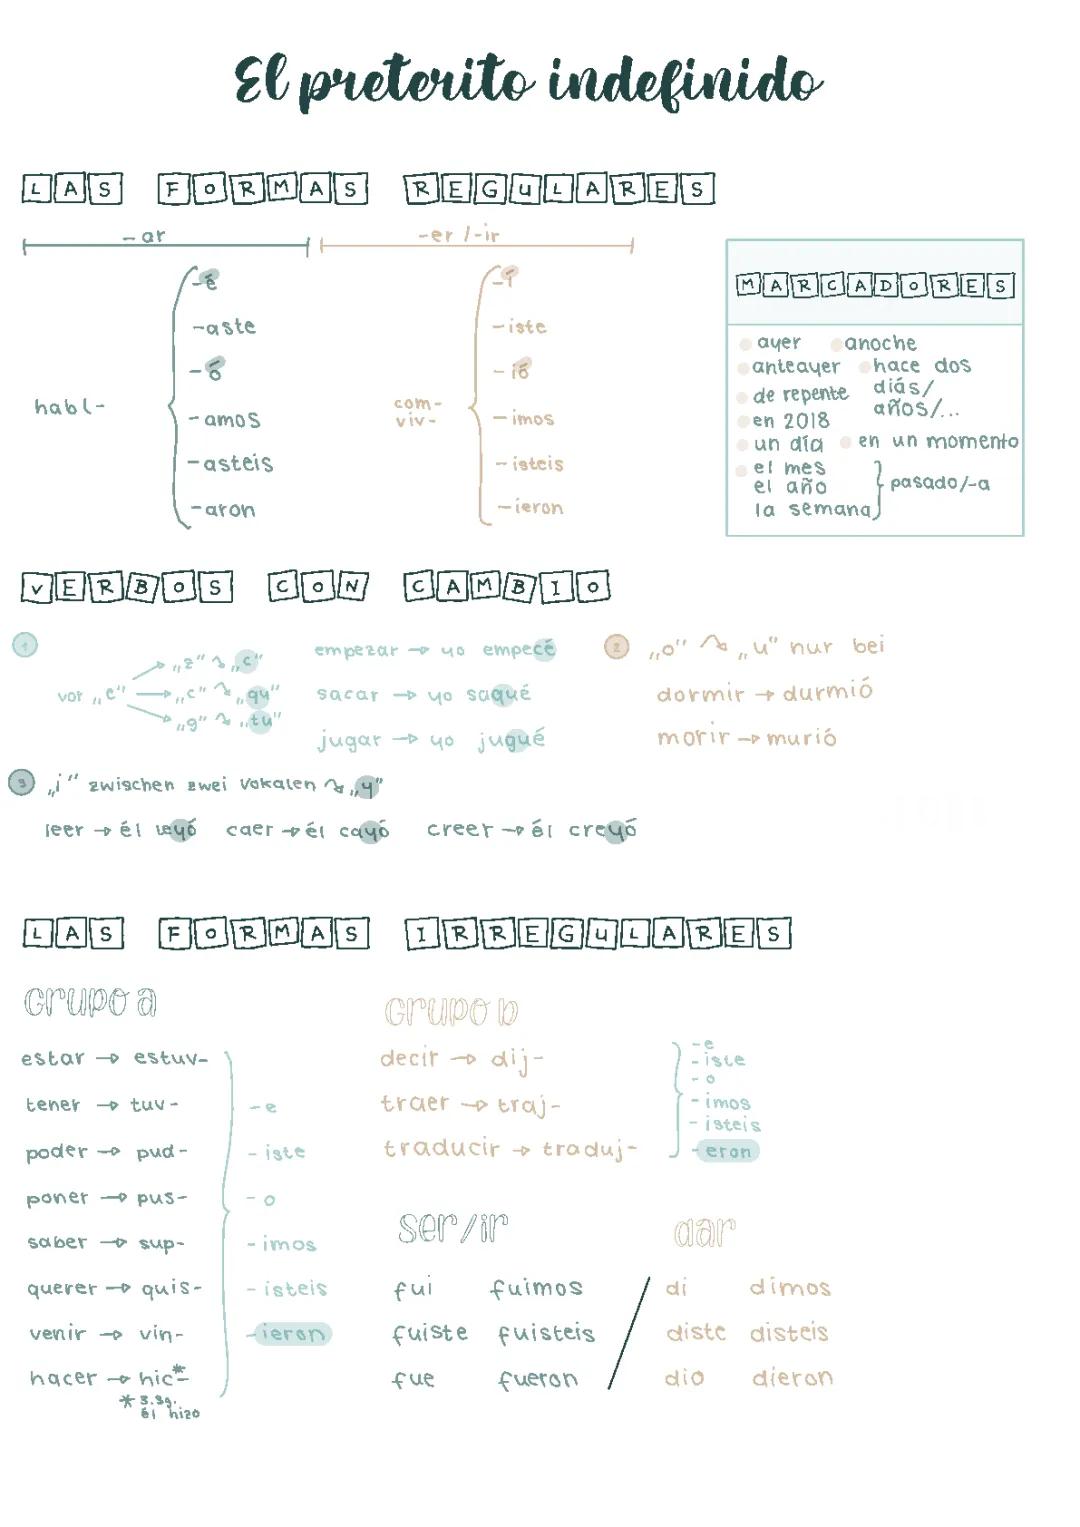 El preterito indefinido
LAS FORMAS REGULARES
-ar
habl-
-é
-aste
-ó
-amos
-asteis
-aron
-er /-ir
com-
viv-
-í
-iste
-ió
-imos
-isteis
-ieron
MARCADORES
ayer anoche
anteayer hace dos
de repente diás/
en 2018 años/...
un día en un momento
el mes
el año pasado/-a
la semana
VERBOS CON CAMBIO
1
vor „e"
„z" „c"
„c" „qu"
„g" „tu"
empezar → yo empecé
sacar → yo saqué
jugar → yo jugué
2 „o" „u" nur bei
dormir → durmió
morir → murió
3 „i" zwischen zwei Vokalen „y"
leer → él leyó caer → él cayó creer → él creyó
LAS FORMAS IRREGULARES
Grupo a
estar → estuv-
tener → tuv-
poder → pud-
poner → pus-
saber → sup-
querer → quis-
venir → vin-
hacer → hic*-
* 3.sg.
él hizo
-e
-iste
-o
-imos
-isteis
-ieron
Grupo b
decir → dij-
traer → traj-
traducir → traduj-
-e
-iste
-o
-imos
-isteis
-eron
ser/ir
fui fuimos
fuiste fuisteis
fue fueron
dar
di dimos
diste disteis
dio dieron